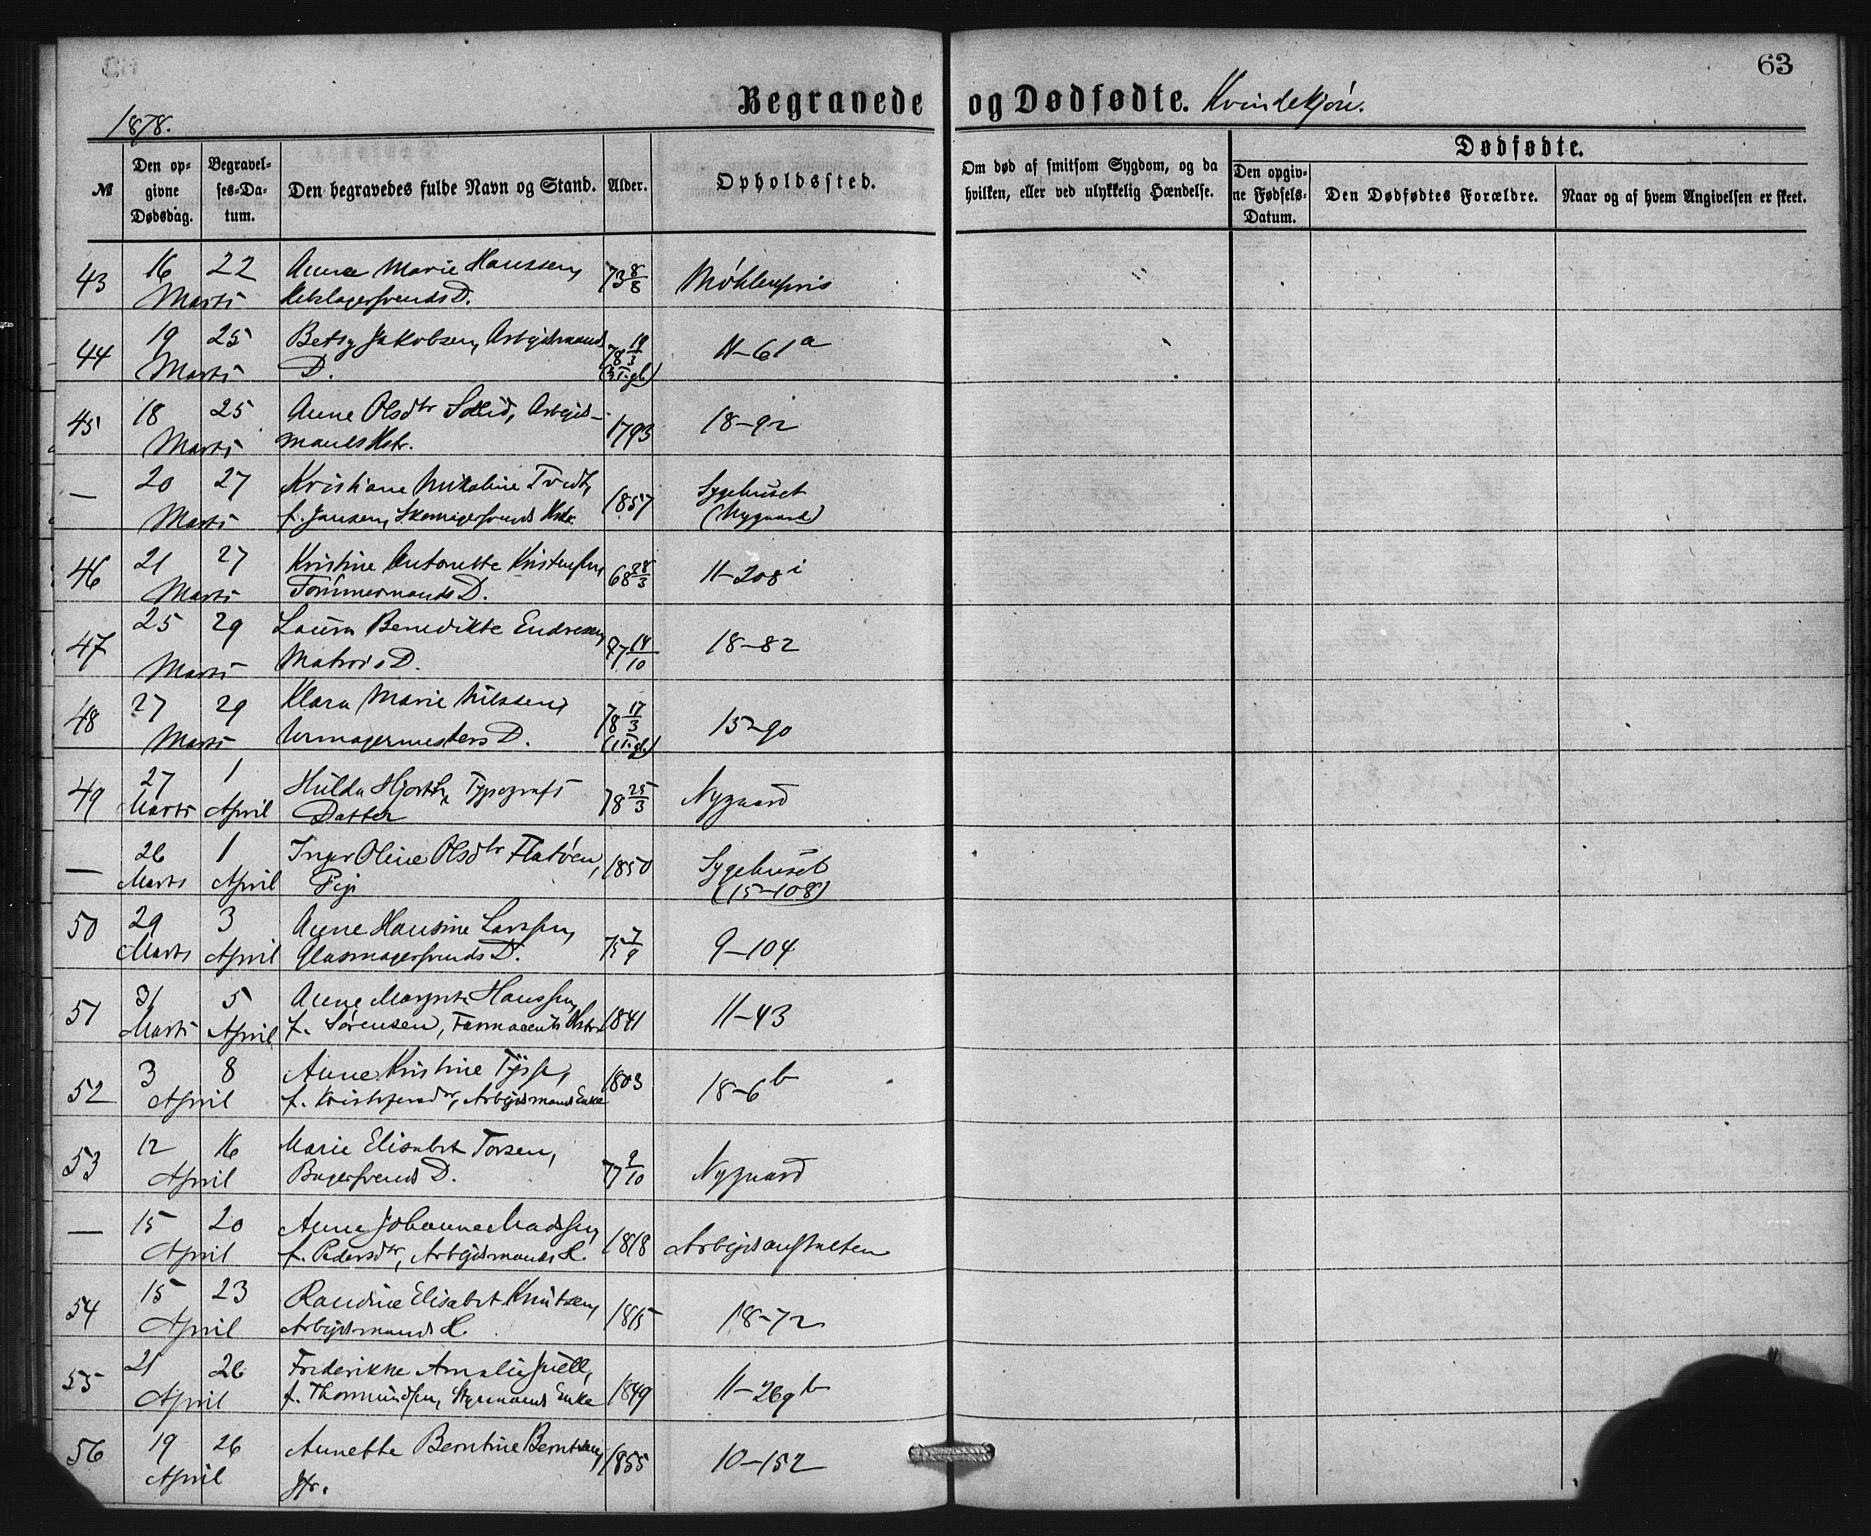 63
Begravede og Dødfødte. Kvindekjøn.
1878.
Dødfødte.
№
Den opgivne Dødsdag.
Begravelses-Datum.
Den begravedes fulde Navn og Stand.
Alder.
Opholdssted.
Om død af smitsom Sygdom, og da hvilken, eller ved ulykkelig Hændelse.
Den opgivne Fødsels-Datum.
Den Dødfødtes Forældre.
Naar og af hvem Angivelsen er skeet.
43 16 22 Anna Marie Hanssen, 73 8/8 Møhlenpris
Marts Reblagersvends D.
44 19 25 Betsy Jakobsen, Arbejdsmands 78 19/3 11-61 a
Marts D.
45 18 25 Anne Olsdtr Solid, Arbejds- 1793 18-92
Marts mands Hstr.
— 20 27 Kristiane Nikoline Tvedt, 1857 Sygehuset
Marts f. Jansen, Skomagersvends Hstr. (Nygaard)
46 21 27 Kristine Antonette Kristensen, 68 28/3 11-208 i
Marts Tømmermands D.
47 25 29 Laura Benedikte Endresen, 77 14/10 18-82
Marts Matros D.
48 27 29 Klara Marie Nilssen, 78 17/3 15-90
Marts Urmagermesters D.
49 27 1 Hulda Hjorth, Typografs 78 25/3 Nygaard
Marts April Datter
— 26 1 Inger Oline Olsdtr Flatøen, 1850 Sygehuset
Marts April Pige (15-108)
50 29 3 Anne Hansine Larssen, 75 7/9 9-104
Marts April Glasmagersvends D.
51 31 5 Anne Margrete Hanssen, 1841 11-43
Marts April f. Sørensen, Farmaceuts Hstr.
52 3 8 Anne Kristine Tysse, 1803 18-6 b
April f. Kristofersdtr, Arbejdsmands Enke
53 12 16 Marie Elisabet Torsen, 77 9/10 Nygaard
April Bagersvends D.
— 15 20 Anne Johanne Madssen, 1818 Arbejdsanstalten
April f. Pedersdtr, Arbejdsmands H.
54 15 23 Randine Elisabet Knutsen, 1815 18-72
April Arbejdsmands H.
55 21 26 Friderikke Amalie Juell, 1849 11-269 b
April f. Thormundsen, Styrmands Enke
56 19 26 Annette Berntine Berntsen, 1855 10-152
April Jfr.